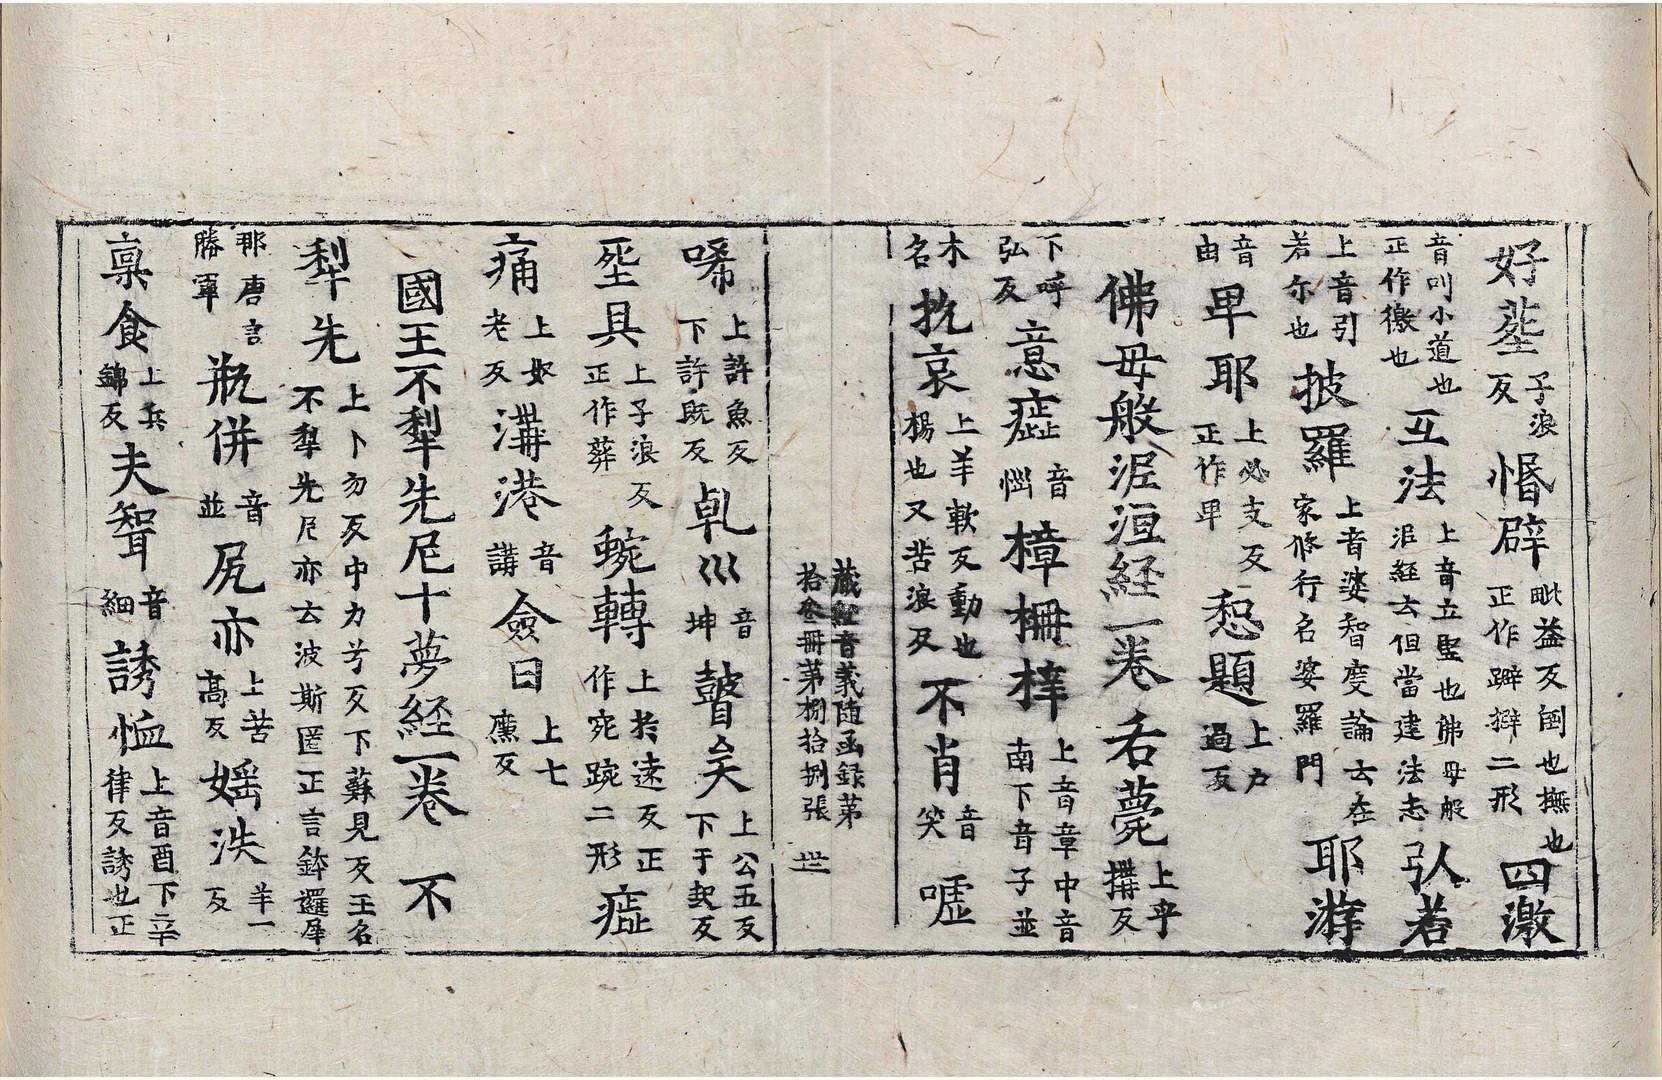 好塟子浪反惽辟毗益反闺也撫也正作躃擗二形四激
音叫小道也正作徼也互法上音立竪也佛母般泥経云但當建法志引若
上音引若尓也披羅上音婆智度論云在家修行名婆羅門耶游
音由卑耶上必支反正作卑愁題上力過反
佛母般泥洹経一卷右薨上乎搆反
下呼弘反意𤺺音𢙐樟柟梓上音章中音南下音子並
木名抗哀上羊軟反動也楊也又苦浪反不肖音笑嘘
藏経音義随函録第拾叁冊第捌拾捌張 丗
唏上許魚反下許既反乹巛音坤瞽矣上公五反下于起反
塟具上子浪反正作葬踠轉上扵遠反正作宛踠二形𤺺
痛上奴老反溝港音講僉曰上七廉反
國王不犁先尼十夢経一卷 不
犁先上卜勿反中力兮反下蘇見反王名不犁先尼亦云波斯匿正言鉢邏犀
那唐言勝軍瓶併音並尻亦上苦髙反婬泆羊一反
稟食上兵錦反夫壻音細誘恤上音酉下辛律反誘也正